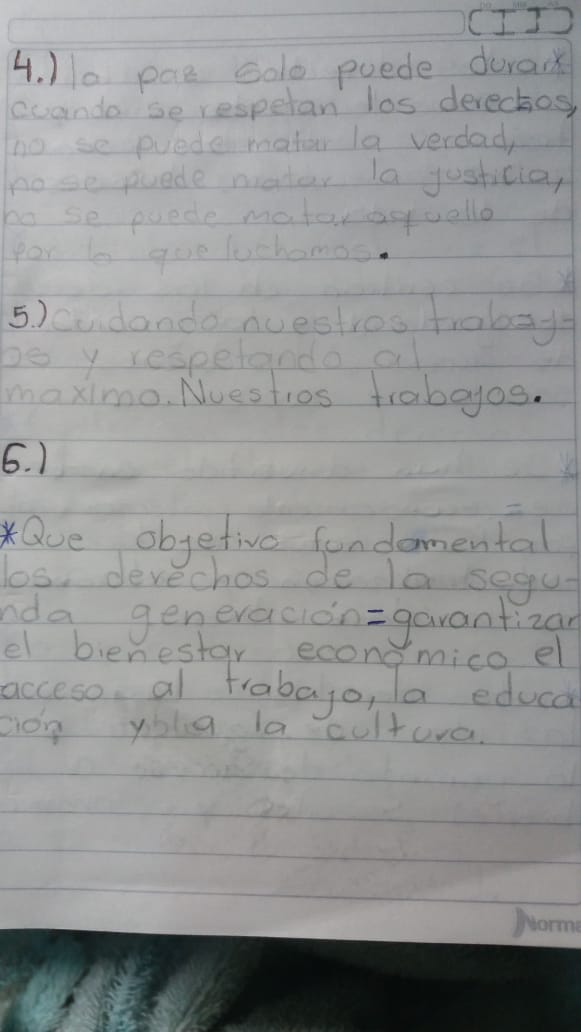 4.) la paz solo puede durar
cuando se respetan los derechos,
no se puede matar la verdad,
no se puede matar la justicia,
no se puede matar aquello
por lo que luchamos.
5.) Cuidando nuestros trabaj-
os y respetando al
maximo. Nuestros trabajos.
6.)
*Que obgetivo fundamental
los derechos de la segu-
nda generación = garantizar
el bienestar económico el
acceso al trabajo, la educa
ción y la cultura.
Norma